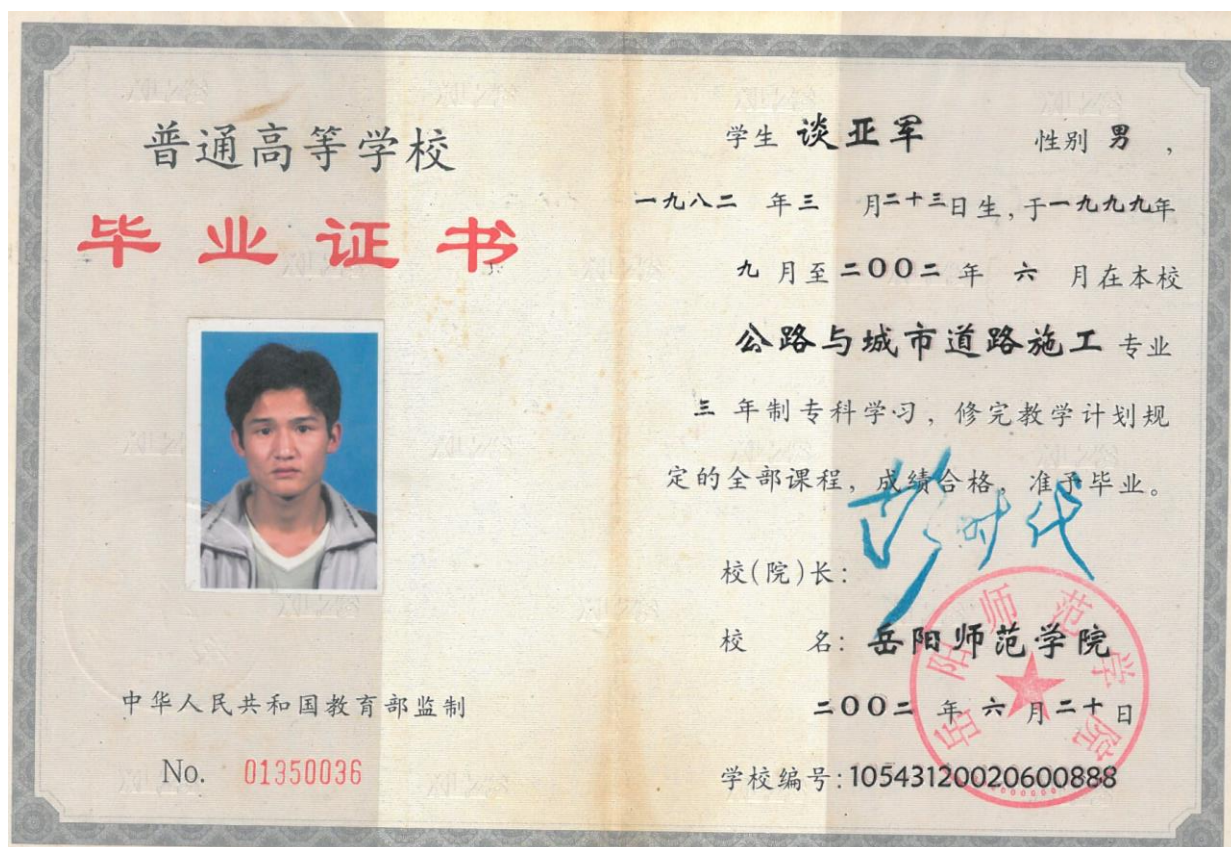 普通高等学校
毕业证书
中华人民共和国教育部监制
No. 01350036
学生 谈亚军 性别 男 ,
一九八二 年三 月二十三日生,于一九九九年
九 月至二〇〇二 年 六 月在本校
公路与城市道路施工 专业
三 年制专科学习，修完教学计划规
定的全部课程，成绩合格，准予毕业。
彭时代
校(院)长:
校 名: 岳阳师范学院
二〇〇二 年 六 月二十日
学校编号:10543120020600888
岳阳师范学院